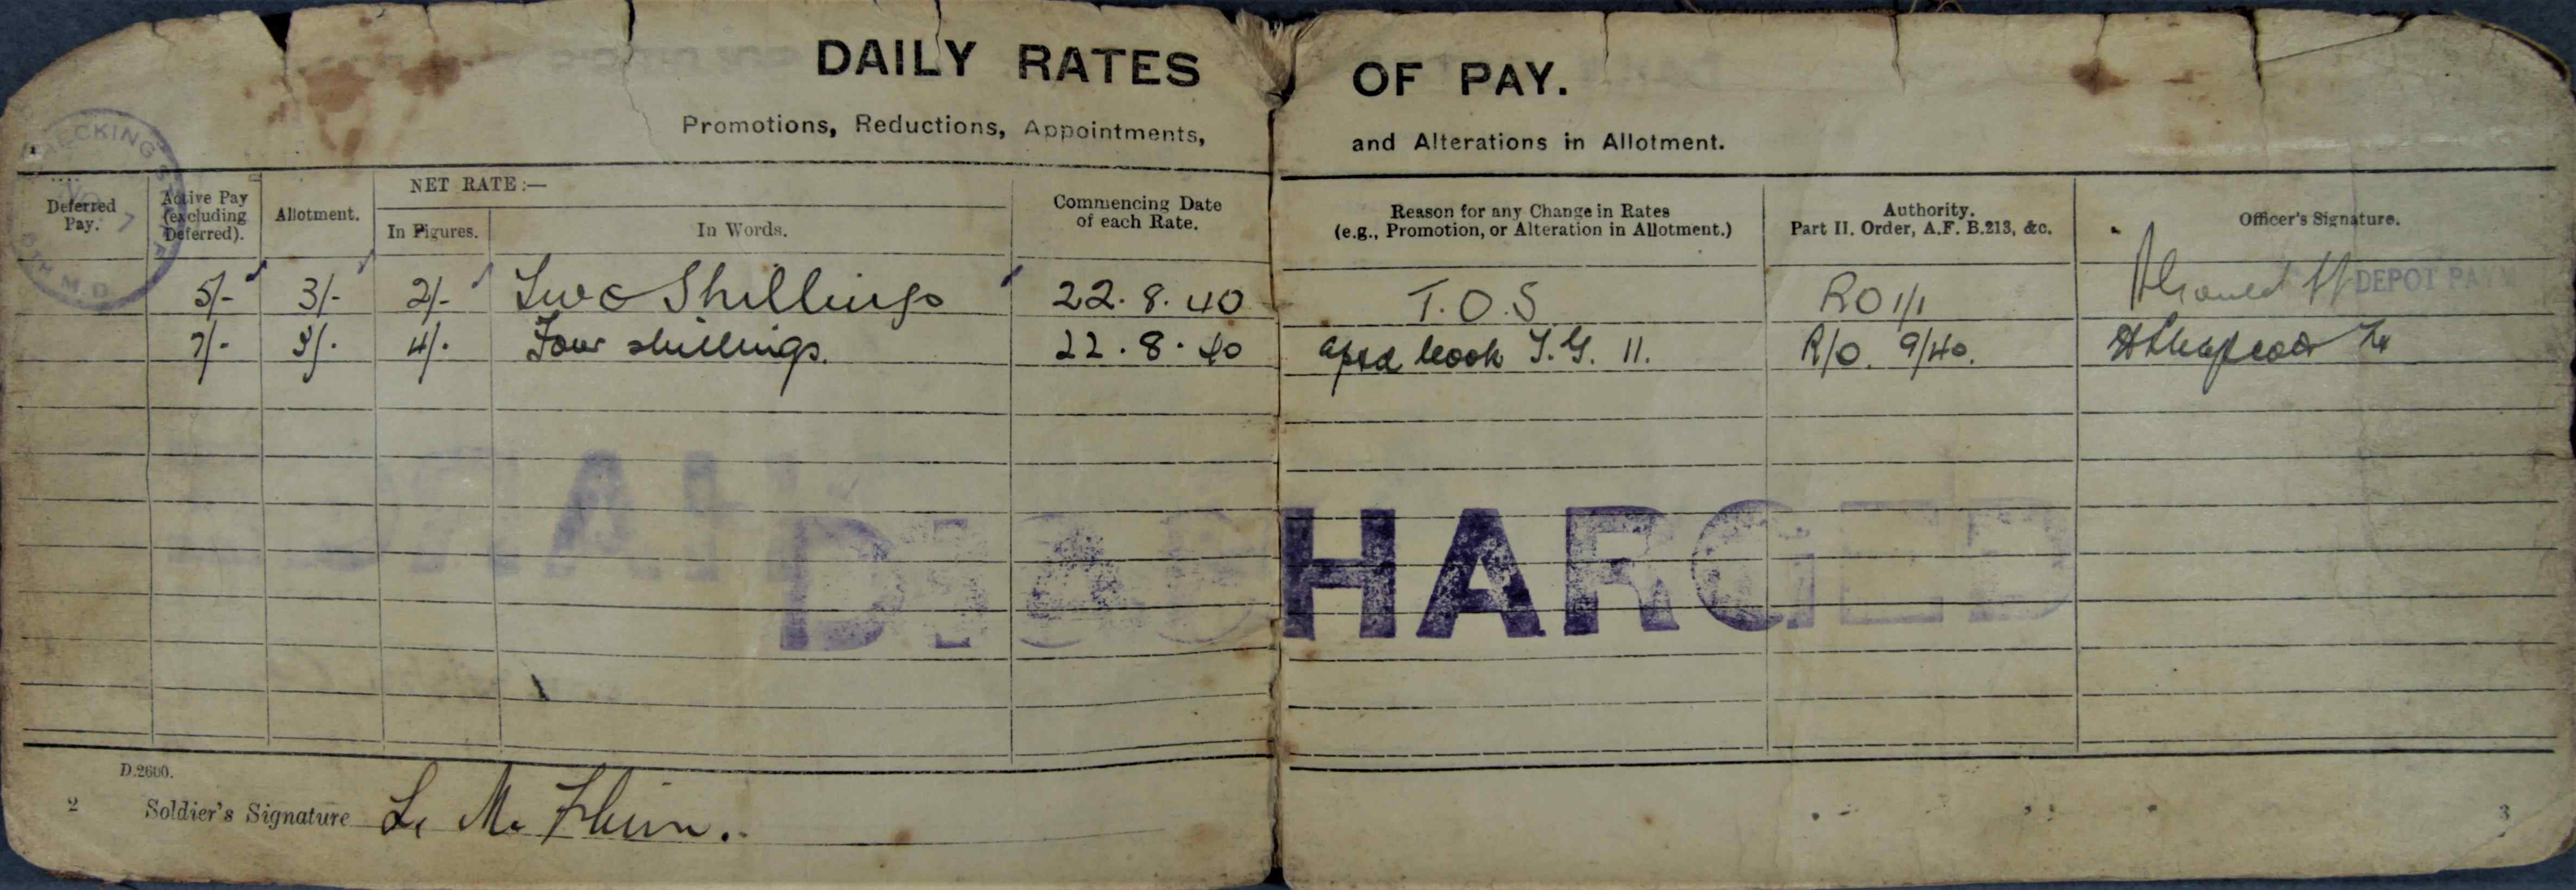 DAILY RATES OF PAY.
Promotions, Reductions, Appointments, and Alterations in Allotment.
CHECKING STAFF
M.D.
Deferred Pay.
Active Pay (excluding Deferred).
Allotment.
NET RATE:—
In Figures.
In Words.
Commencing Date of each Rate.
Reason for any Change in Rates (e.g., Promotion, or Alteration in Allotment.)
Authority. Part II. Order, A.F. B.213, &c.
Officer's Signature.
5/- 3/- 2/- Two Shillings 22.8.40 T.O.S RO 1/1 DEPOT PAY
7/- 3/- 4/- Four shillings. 22.8.40 Cook T.G. II. R/O. 9/40.
DISCHARGED
D.2600.
2 Soldier's Signature L. M. 3